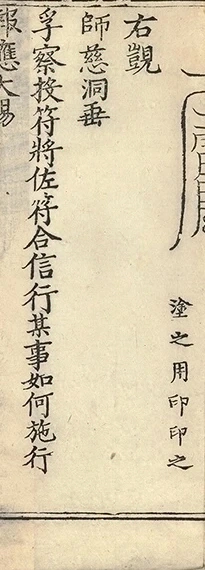 塗之用印印之
右覬
師慈洞垂
孚察投符將佐符合信行某事如何施行
報應大賜